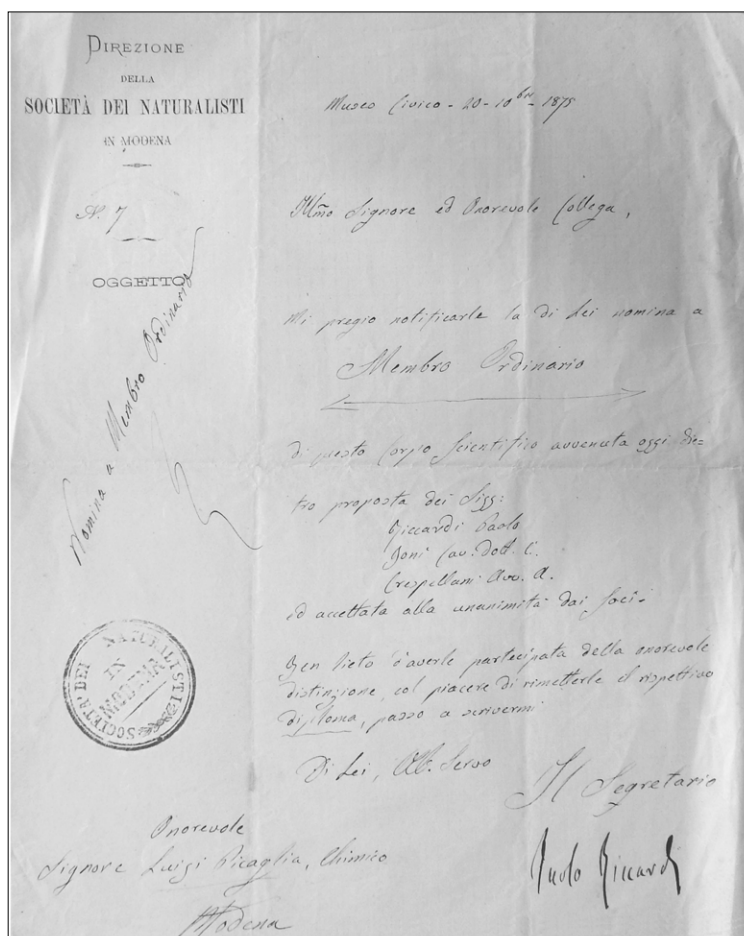 DIREZIONE
DELLA
SOCIETÀ DEI NATURALISTI
IN MODENA
N. 7
OGGETTO
Nomina a Membro Ordinario
Museo Civico - 20 - 10bre - 1875
Illmo Signore ed Onorevole Collega,
Mi pregio notificarle la di Lei nomina a
Membro Ordinario
di questo Corpo Scientifico avvenuta oggi die=
tro proposta dei Sigg:
Riccardi Paolo
Boni Cav. Dott. C.
Crespellani Avv. A.
ed accettata alla unanimità dai Soci.
Ben lieto d'averle partecipata della onorevole
distinzione, col piacere di rimetterle il rispettivo
diploma, passo a scrivermi
Di Lei, Obb. Servo
Il Segretario
Paolo Riccardi
SOCIETÀ DEI NATURALISTI
IN
MODENA
Onorevole
Signore Luigi Picaglia, Chimico
Modena